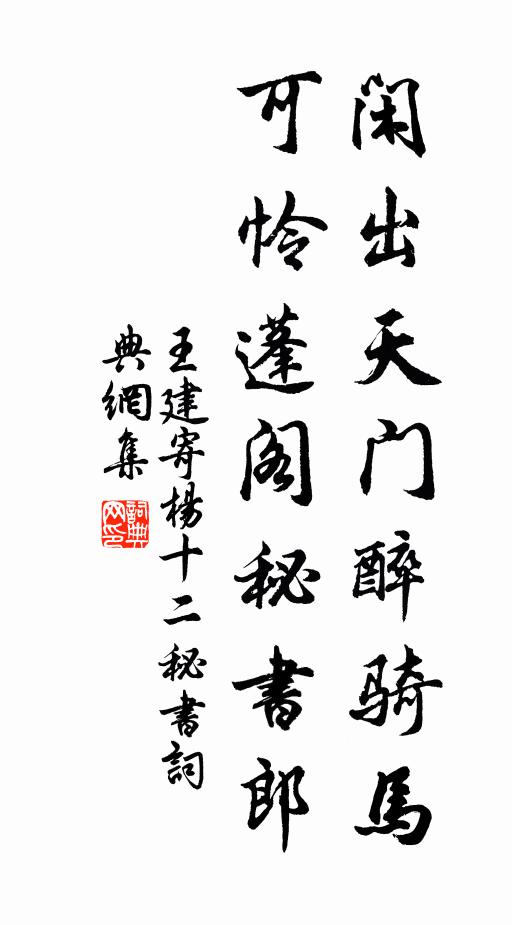 闲出天门醉骑马
可怜蓬阁秘书郎
王建寄楊十二秘書詞
典網集
詞典网印